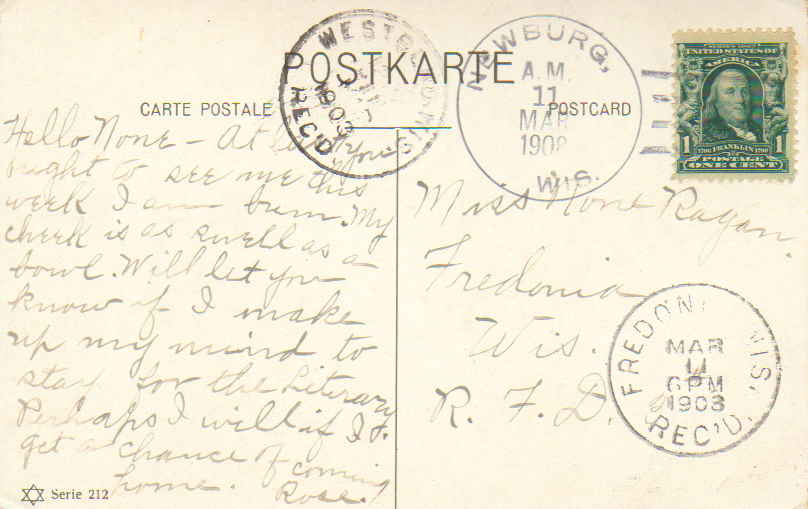 POSTKARTE
CARTE POSTALE
POSTCARD
WEST
REC'D.
NEWBURG,
A.M.
11
MAR
1908
WIS.
UNITED STATES OF
AMERICA
1 1706 FRANKLIN 1790 1
POSTAGE
ONE CENT
Hello None - At
you
ought to see me this
week I am bum. My
cheek is as swell as a
bowl. Will let you
know if I make
up my mind to
stay for the Literary
Perhaps I will if I
get a chance of coming
home. Rose.
Miss None Ragan.
Fredonia
Wis.
R. F. D.
FREDONI WIS.
MAR
11
6 PM
1908
REC'D.
Serie 212